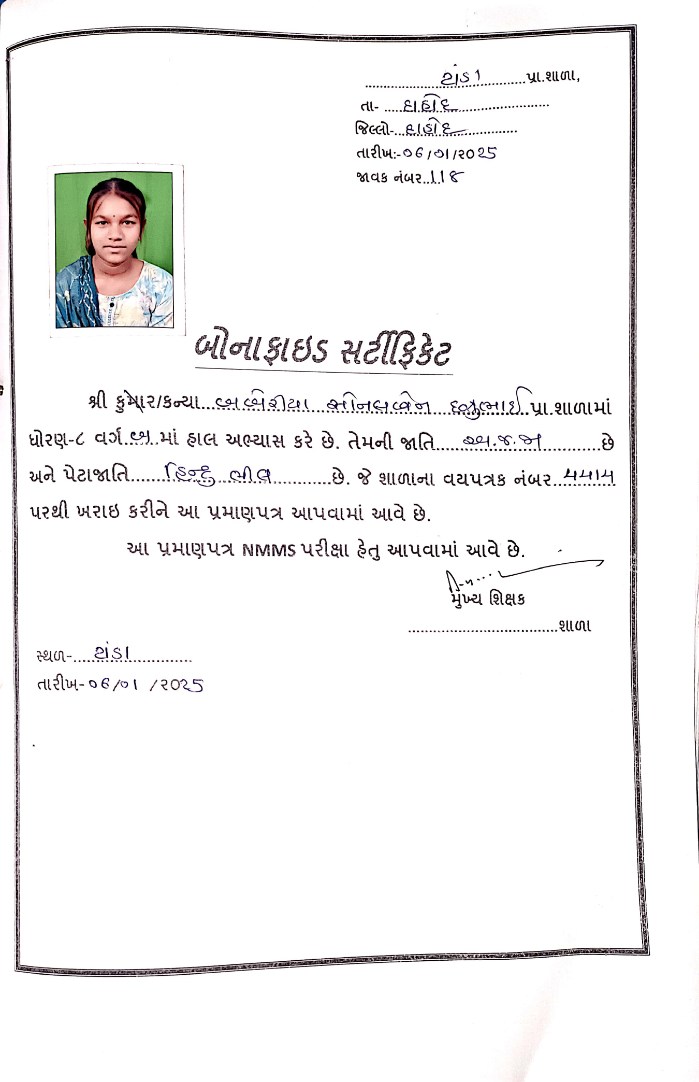 .................રાંડા............પ્રા.શાળા,
તા- .....દાહોદ.......................
જિલ્લો-...દાહોદ................
તારીખ:-૦૬/૦૧/૨૦25
જાવક નંબર..118
બોનાફાઇડ સર્ટીફિકેટ
શ્રી કુમાર/કન્યા...બબેરીયા સોનલબેન છજુભાઈ પ્રા.શાળામાં
ધોરણ-૮ વર્ગ.બ.માં હાલ અભ્યાસ કરે છે. તેમની જાતિ.....અ.જ.જા...........છે
અને પેટાજાતિ........હિન્દુ ભીલ...........છે. જે શાળાના વયપત્રક નંબર..૫૫1૫
પરથી ખરાઇ કરીને આ પ્રમાણપત્ર આપવામાં આવે છે.
આ પ્રમાણપત્ર NMMS પરીક્ષા હેતુ આપવામાં આવે છે.
મુખ્ય શિક્ષક
.................................શાળા
સ્થળ-....રાંડા..............
તારીખ-૦૬/૦૧ /૨૦25